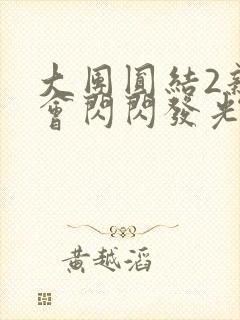 大團圓結2新
會閃閃發光
黃越滔